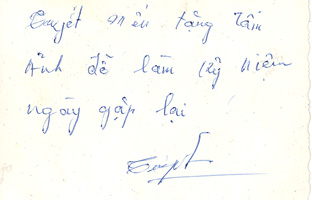 Tuyết mến tặng Tấm
Ảnh để làm kỷ niệm
ngày gặp lại
Tuyết